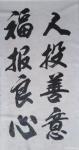 人投善意
福报良心